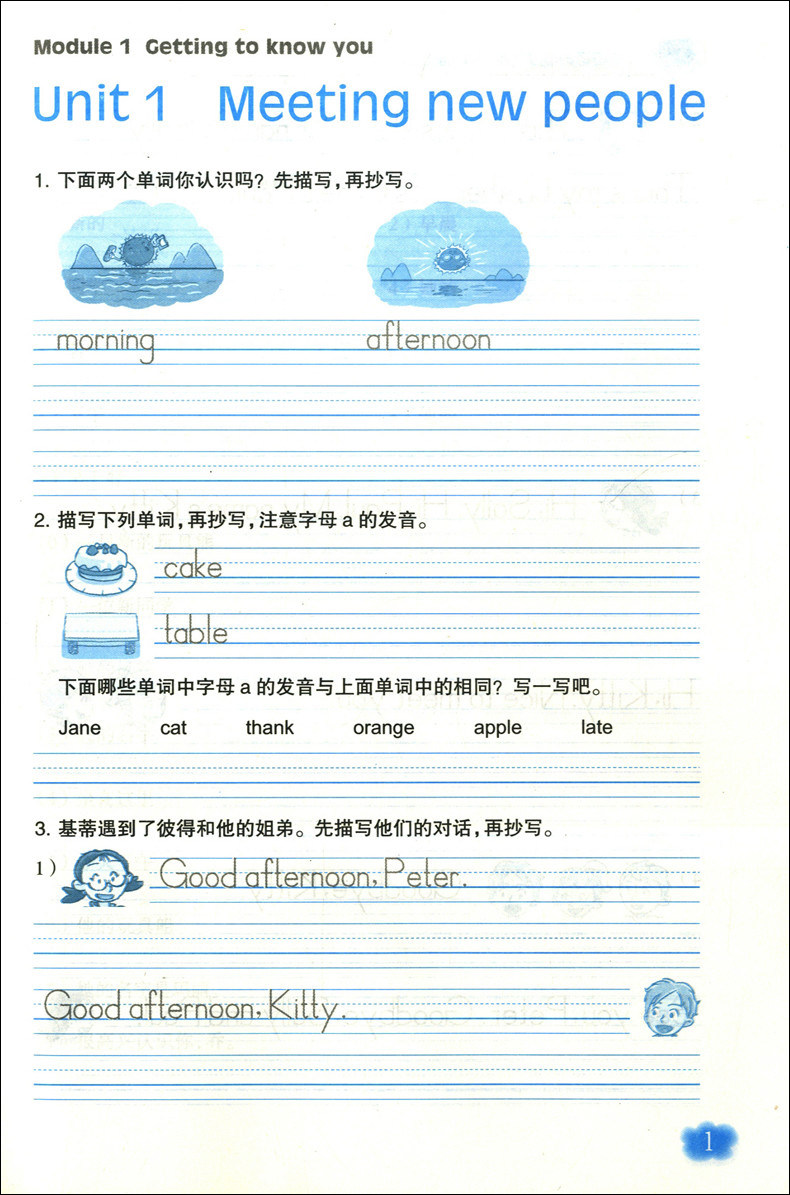 Module 1 Getting to know you
Unit 1 Meeting new people
1. 下面两个单词你认识吗？先描写，再抄写。
morning afternoon
2. 描写下列单词，再抄写，注意字母 a 的发音。
cake
table
下面哪些单词中字母 a 的发音与上面单词中的相同？写一写吧。
Jane cat thank orange apple late
3. 基蒂遇到了彼得和他的姐弟。先描写他们的对话，再抄写。
1) Good afternoon, Peter.
Good afternoon, Kitty.
1